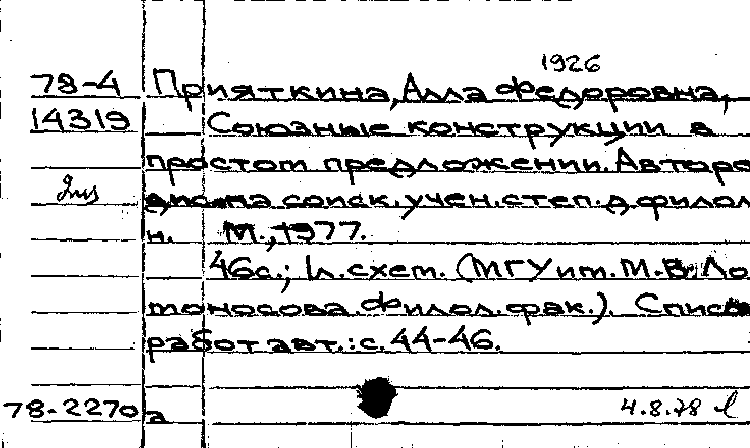 1926
78-4 Прияткина, Алла Федоровна,
14319 Союзные конструкции в
простом предложении. Авторе
дис. на соиск. учен. степ. д. филол
н. М., 1977.
46с.; 1л. схем. (МГУ им. М.В. Ло
моносова. Филол. фак.). Списо
работ авт.: с. 44-46.
78-2270а
4.8.78